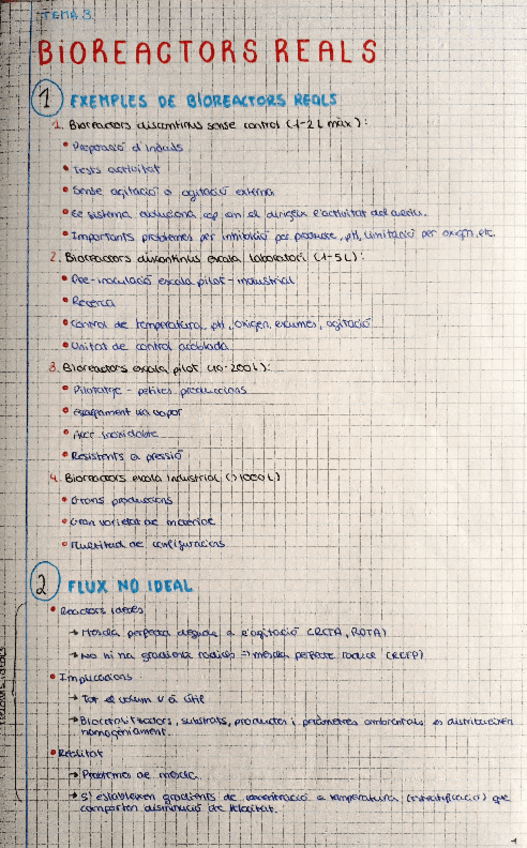 TEMA 3
BIOREACTORS REALS
1 EXEMPLES DE BIOREACTORS REALS
1. Bioreactors discontinus sense control (1-2 L màx):
• Preparació d'inòculs
• Tests activitat
• Sense agitació o agitació externa
• El sistema evoluciona cap on el dirigeix l'activitat del cultiu.
• Importants problemes per inhibició per producte, pH, limitació per oxigen, etc.
2. Bioreactors discontinus escala laboratori (1-5L):
• Pre-inoculació escala pilot-industrial
• Recerca
• Control de temperatura, pH, oxigen, escumes, agitació
• Unitat de control acoblada
3. Bioreactors escala pilot (10-200L):
• Pilotatge - petites produccions
• Escalfament via vapor
• Acer inoxidable
• Resistents a pressió
4. Bioreactors escala industrial (>1000L)
• Grans produccions
• Gran varietat de material
• Multitud de configuracions
2 FLUX NO IDEAL
• Reactors ideals
→ Mescla perfecta deguda a l'agitació (RCTA, RDTA)
→ No hi ha gradients radials => mescla perfecte radial (RCFP)
• Implicacions
→ Tot el volum V és útil
→ Biocatalitzadors, substrats, productes i paràmetres ambientals es distribueixen
homogèniament.
• Realitat
→ Problemes de mescla
→ S'estableixen gradients de concentració o temperatura (estratificació) que
comporten disminució de velocitat.
1